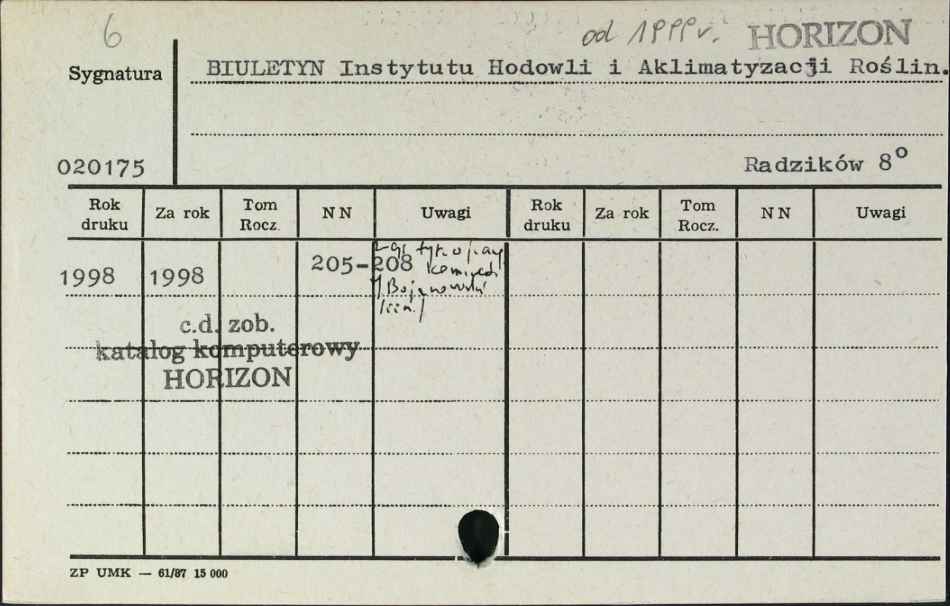 6
od 1999 r. HORIZON
Sygnatura
BIULETYN Instytutu Hodowli i Aklimatyzacji Roślin.
020175
Radzików 8°
Rok druku Za rok Tom Rocz. NN Uwagi Rok druku Za rok Tom Rocz. NN Uwagi
1998 1998 205-208
c.d. zob.
katalog komputerowy
HORIZON
ZP UMK — 61/87 15 000